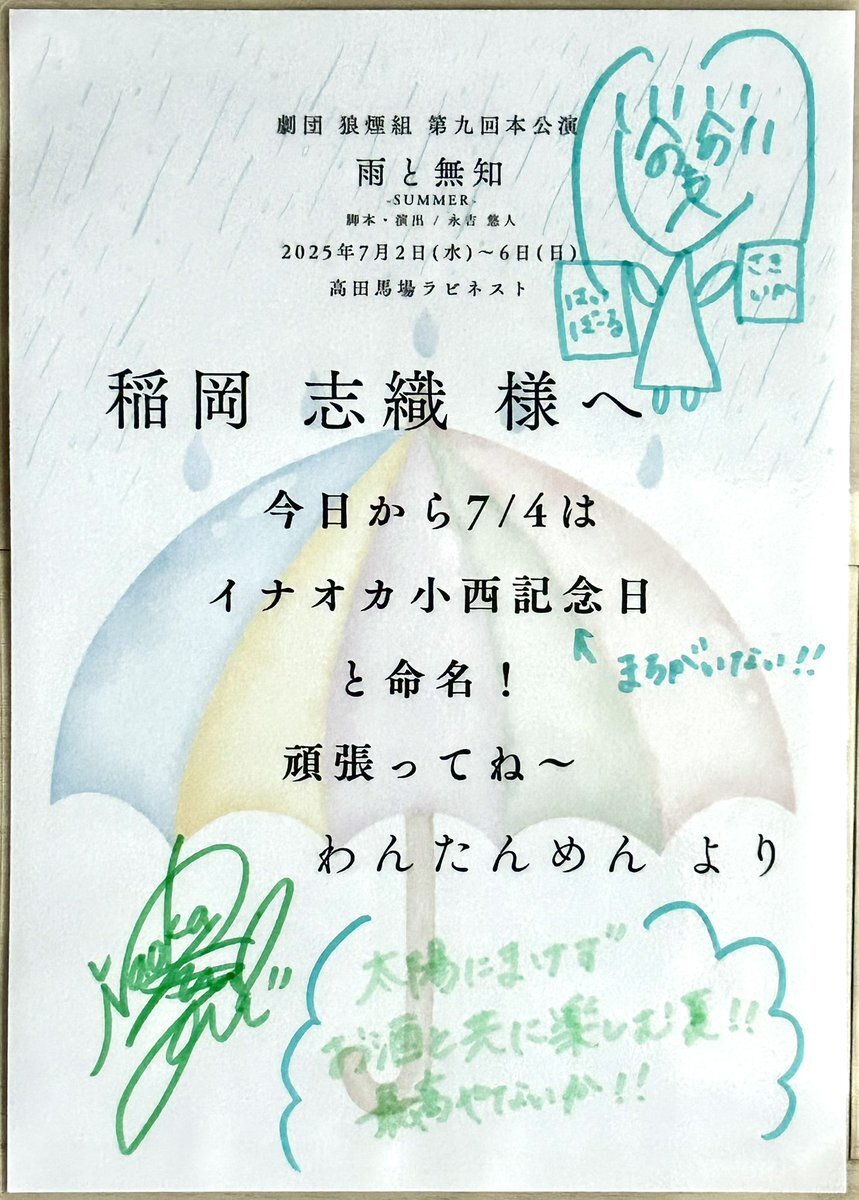 劇団 狼煙組 第九回本公演
雨と無知
-SUMMER-
脚本・演出 / 永吉 悠人
2025年7月2日(水)～6日(日)
高田馬場ラビネスト
はい
ぼーる
さき
いか
稲岡 志織 様へ
今日から7/4は
イナオカ小西記念日
まちがいない!!
と命名！
頑張ってね～
わんたんめん より
太陽にまけず
お酒と共に楽しむ夏!!
最高やないか!!